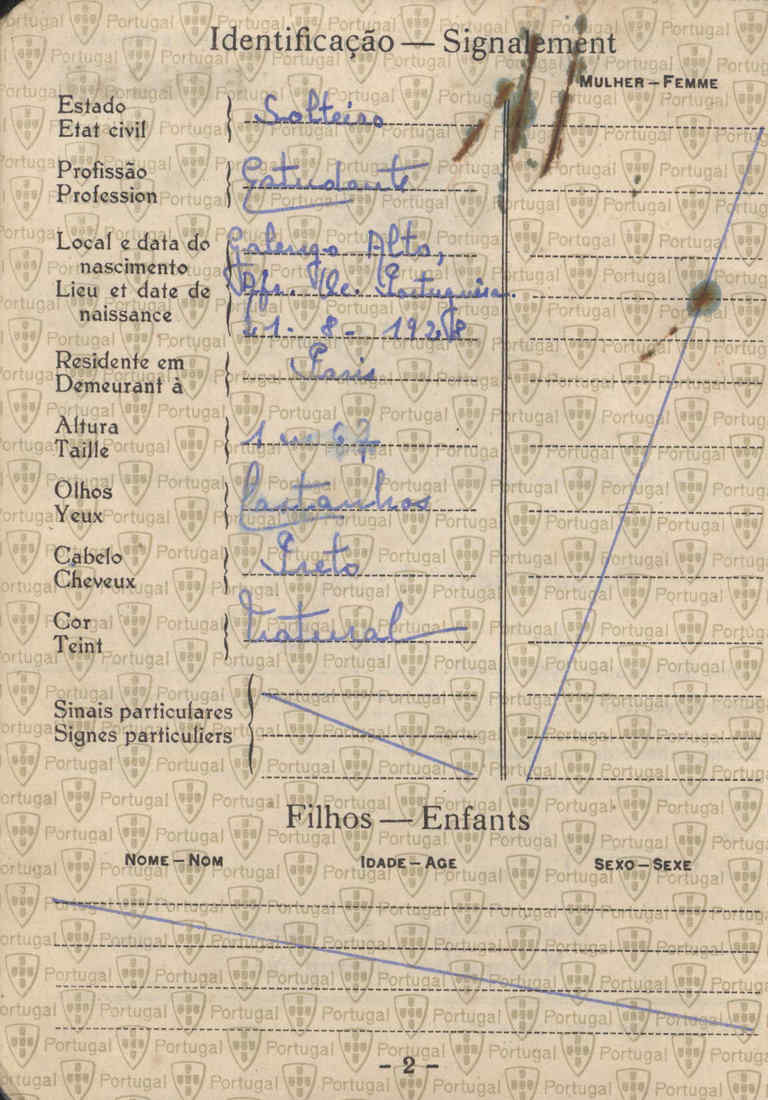 Identificação — Signalement
MULHER – FEMME
Estado Solteiro
Etat civil
Profissão Estudante
Profession
Local e data do Golungo Alto,
nascimento
Lieu et date de Afr. Oc. Portuguesa.
naissance 21 - 8 - 1928
Residente em Paris
Demeurant à
Altura 1 m 67
Taille
Olhos Castanhos
Yeux
Cabelo Preto
Cheveux
Cor Natural
Teint
Sinais particulares
Signes particuliers
Filhos — Enfants
NOME – NOM IDADE – AGE SEXO – SEXE
- 2 -